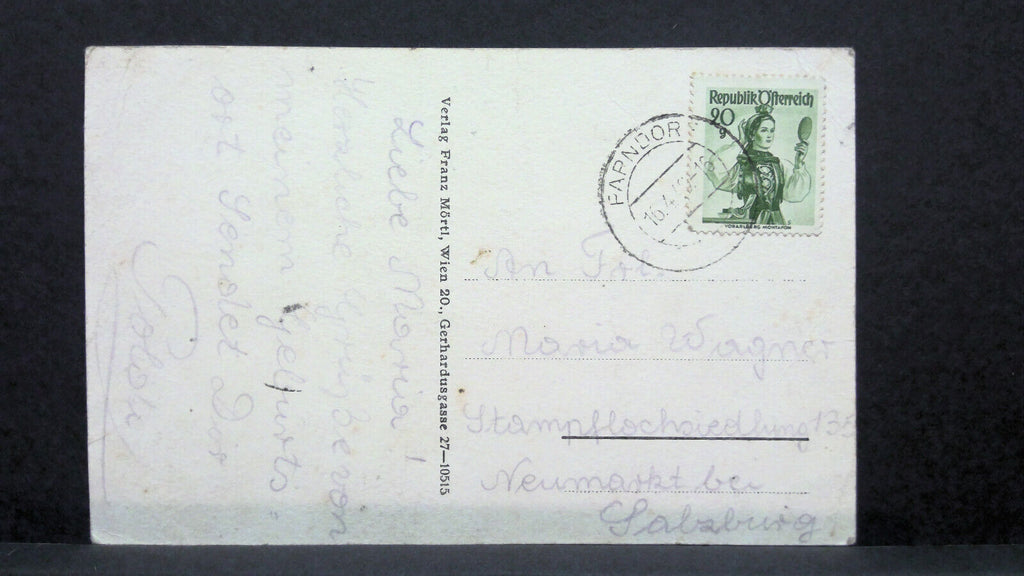 Liebe Maria!
Herzliche Grüße von
meinem Geburts-
ort Sendet Dir
Verlag Franz Mörtl, Wien 20., Gerhardusgasse 27—10515
Republik Österreich
20 g
VORARLBERG MONTAFON
PARNDORF
16.4
An Frl.
Maria Wagner
Stampflochsiedlung 135
Neumarkt bei
Salzburg